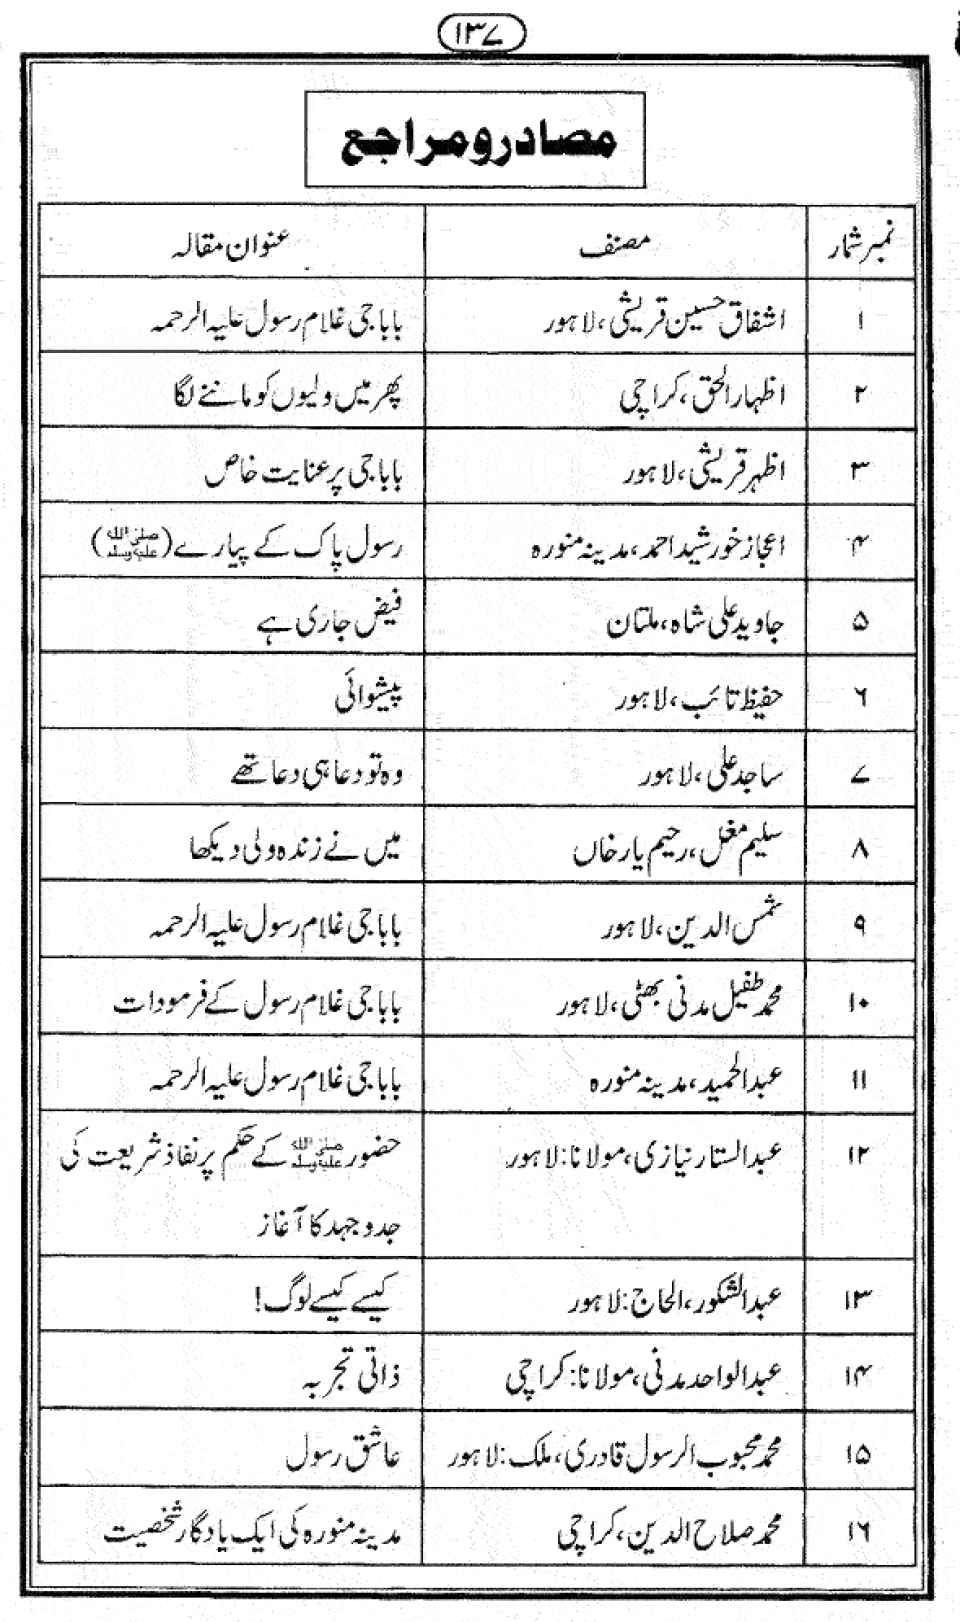 ۱۳۷
مصادر و مراجع
نمبر شمار مصنف عنوان مقالہ
۱ اشفاق حسین قریشی، لاہور باباجی غلام رسول علیہ الرحمہ
۲ اظہار الحق، کراچی پھر میں ولیوں کو ماننے لگا
۳ اظہر قریشی، لاہور باباجی پر عنایت خاص
۴ اعجاز خورشید احمد، مدینہ منورہ رسول پاک کے پیارے (ﷺ)
۵ جاوید علی شاہ، ملتان فیض جاری ہے
۶ حفیظ تائب، لاہور پیشوائی
۷ ساجد علی، لاہور وہ تو دعا ہی دعا تھے
۸ سلیم مغل، رحیم یار خاں میں نے زندہ ولی دیکھا
۹ شمس الدین، لاہور باباجی غلام رسول علیہ الرحمہ
۱۰ محمد طفیل مدنی بھٹی، لاہور باباجی غلام رسول کے فرمودات
۱۱ عبدالحمید، مدینہ منورہ باباجی غلام رسول علیہ الرحمہ
۱۲ عبدالستار نیازی، مولانا: لاہور حضور ﷺ کے حکم پر نفاذ شریعت کی
جدوجہد کا آغاز
۱۳ عبدالشکور، الحاج: لاہور کیسے کیسے لوگ!
۱۴ عبدالواحد مدنی، مولانا: کراچی ذاتی تجربہ
۱۵ محمد محبوب الرسول قادری، ملک: لاہور عاشق رسول
۱۶ محمد صلاح الدین، کراچی مدینہ منورہ کی ایک یادگار شخصیت